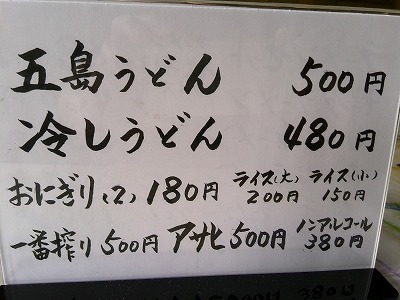 五島うどん 500円
冷しうどん 480円
おにぎり(2) 180円 ライス(大) 200円 ライス(小) 150円
一番搾り 500円 アサヒ 500円 ノンアルコール 380円